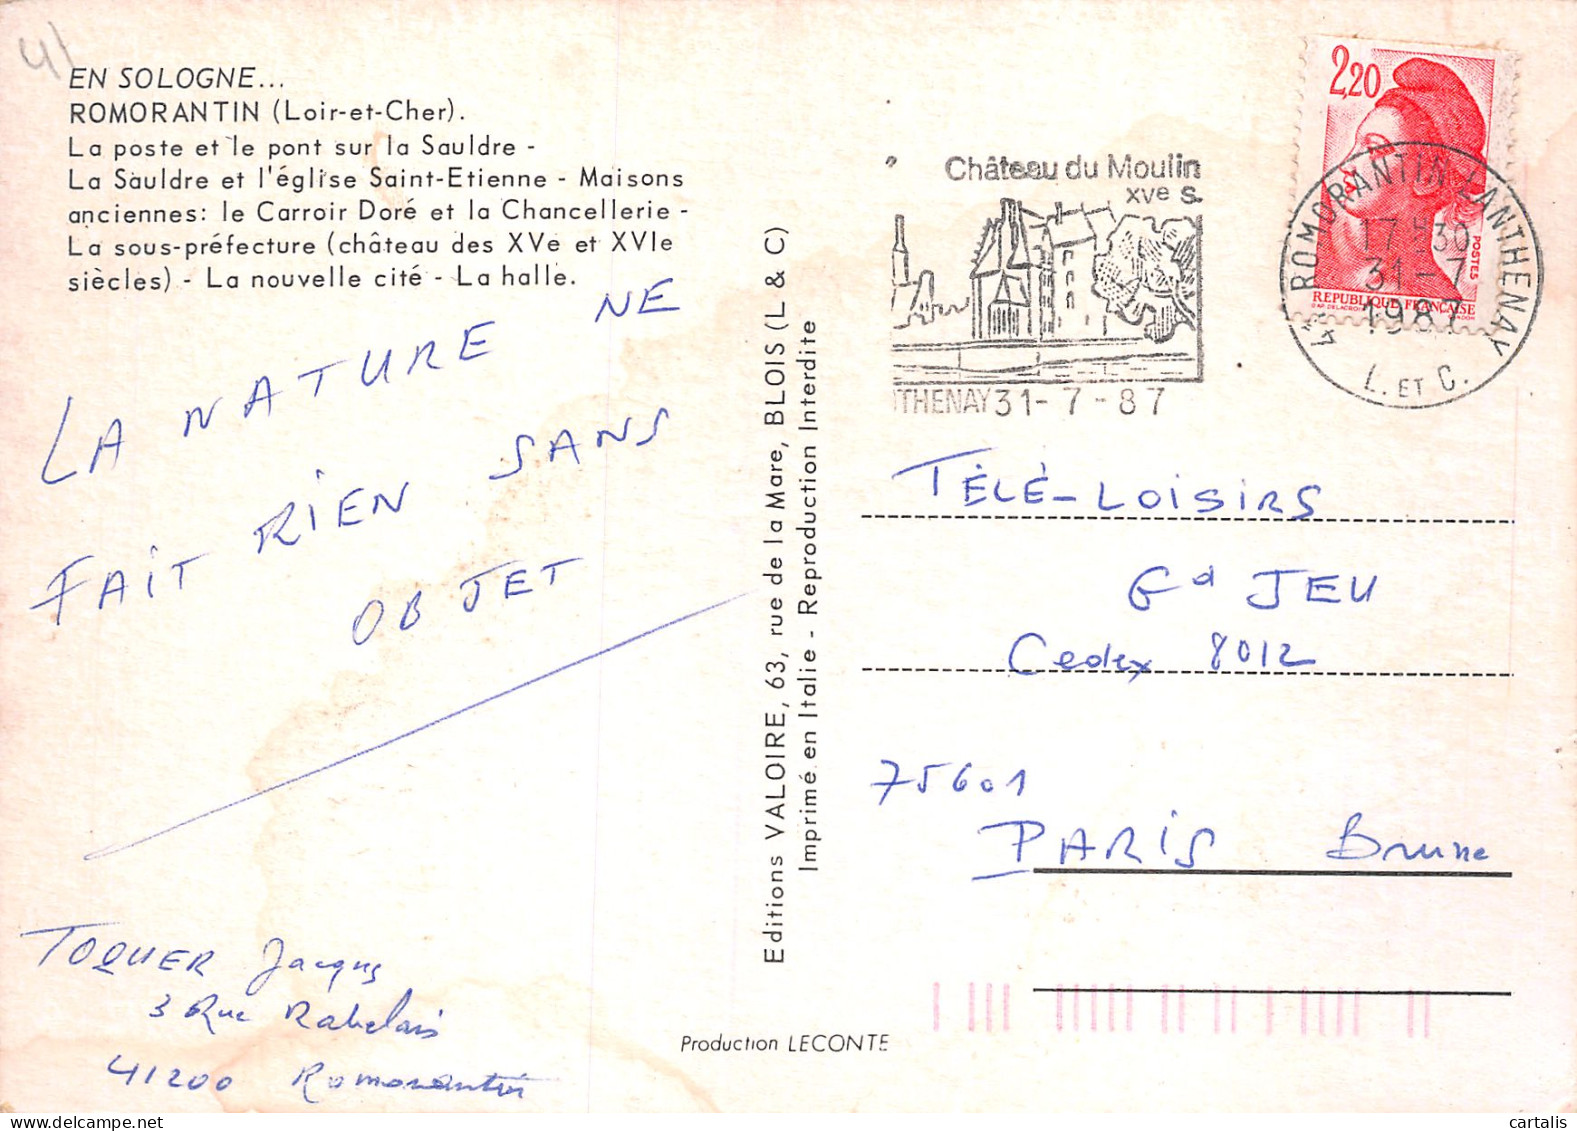 41
EN SOLOGNE...
ROMORANTIN (Loir-et-Cher).
La poste et le pont sur la Sauldre -
La Sauldre et l'église Saint-Etienne - Maisons
anciennes: le Carroir Doré et la Chancellerie -
La sous-préfecture (château des XVe et XVIe
siècles) - La nouvelle cité - La halle.
LA NATURE NE
FAIT RIEN SANS
OBJET
TOQUER Jacques
3 Rue Rabelais
41200 Romorantin
Editions VALOIRE, 63, rue de la Mare, BLOIS (L & C)
Imprimé en Italie - Reproduction Interdite
Production LECONTE
Château du Moulin
XVe S.
THENAY 31-7-87
2,20
POSTES
REPUBLIQUE FRANÇAISE
41 ROMORANTIN LANTHENAY
17H30
31-7
1987
L. ET C.
TÉLÉ-LOISIRS
Gd JEU
Cedex 8012
75601
PARIS Brune
cartalis